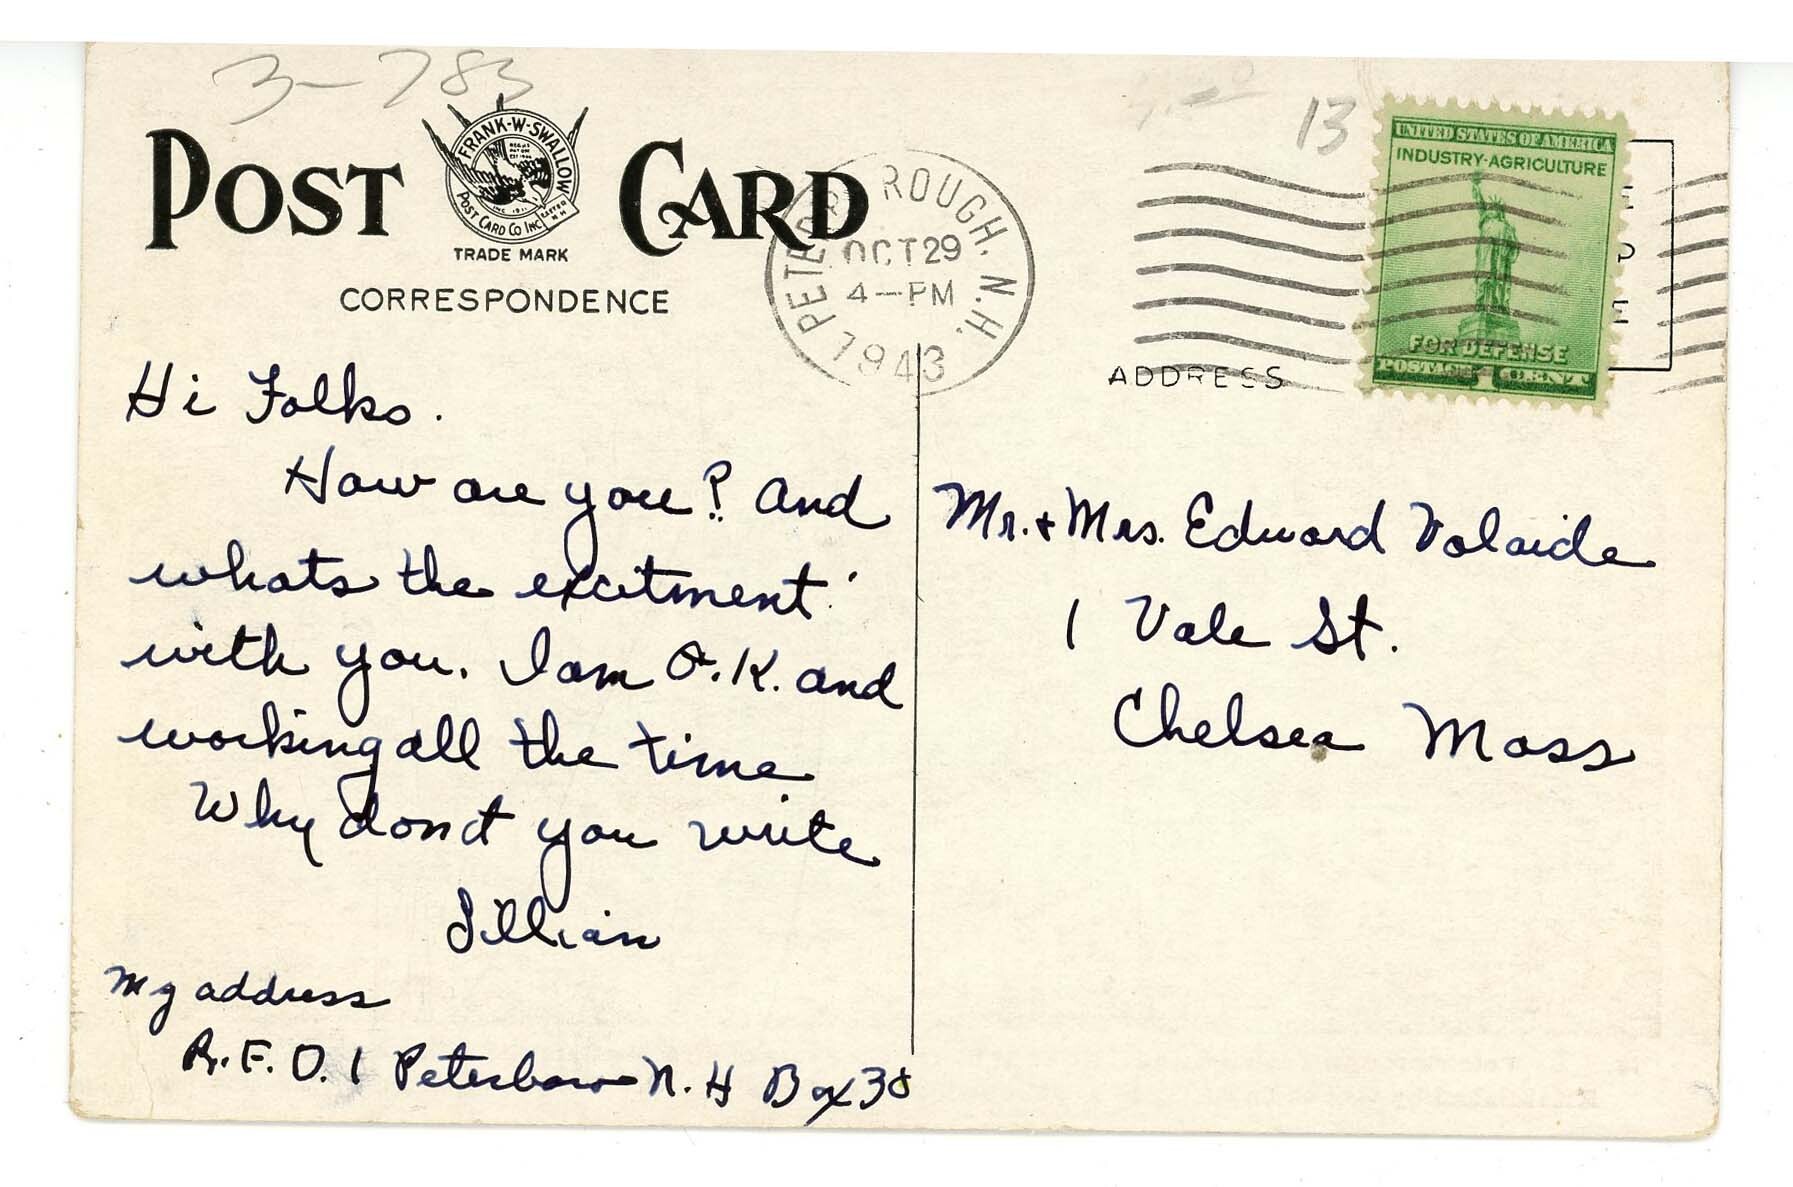 3-783
13
POST CARD
FRANK-W-SWALLOW
POST CARD CO INC
TRADE MARK
CORRESPONDENCE
PETERBOROUGH. N.H.
OCT 29
4-PM
1943
UNITED STATES OF AMERICA
INDUSTRY-AGRICULTURE
FOR DEFENSE
POSTAGE 1 CENT
ADDRESS
Hi Folks.
How are you? And
whats the excitment
with you. I am O.K. and
working all the time
Why dond't you write
Lillian
My address
R.F.D. 1 Peterboro N.H Box 38
Mr. + Mrs. Edward Volaide
1 Vale St.
Chelsea Mass